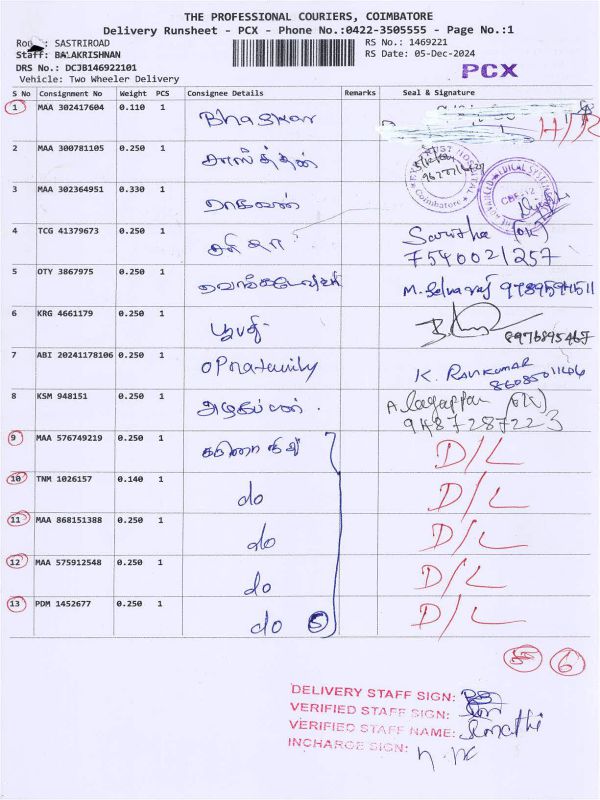 THE PROFESSIONAL COURIERS, COIMBATORE
Delivery Runsheet - PCX - Phone No.:0422-3505555 - Page No.:1
SASTRIROAD
RS No.: 1469221
Staff: BALAKRISHNAN
RS Date: 05-Dec-2024
DRS No.: DCJB146922101
PCX
Vehicle: Two Wheeler Delivery
S No Consignment No Weight PCS Consignee Details Remarks Seal & Signature
1 MAA 302417604 0.110 1 Bhaskar
2 MAA 300781105 0.250 1
Coimbatore
3 MAA 302364951 0.330 1 ராகவன்
4 TCG 41379673 0.250 1 Saritha
7540021257
5 OTY 3867975 0.250 1 M. Selvaraj
6 KRG 4661179 0.250 1 பூபதி 8976895467
7 ABI 20241178106 0.250 1 K. RAVIKUMAR
8 KSM 948151 0.250 1 அழகப்பன். Alagappan
9487287223
9 MAA 576749219 0.250 1 D/L
10 TNM 1026157 0.140 1 do D/L
11 MAA 868151388 0.250 1 do D/L
12 MAA 575912548 0.250 1 do D/L
13 PDM 1452677 0.250 1 do 5 D/L
6
DELIVERY STAFF SIGN:
VERIFIED STAFF SIGN:
VERIFIED STAFF NAME: Sumathi
INCHARGE SIGN: